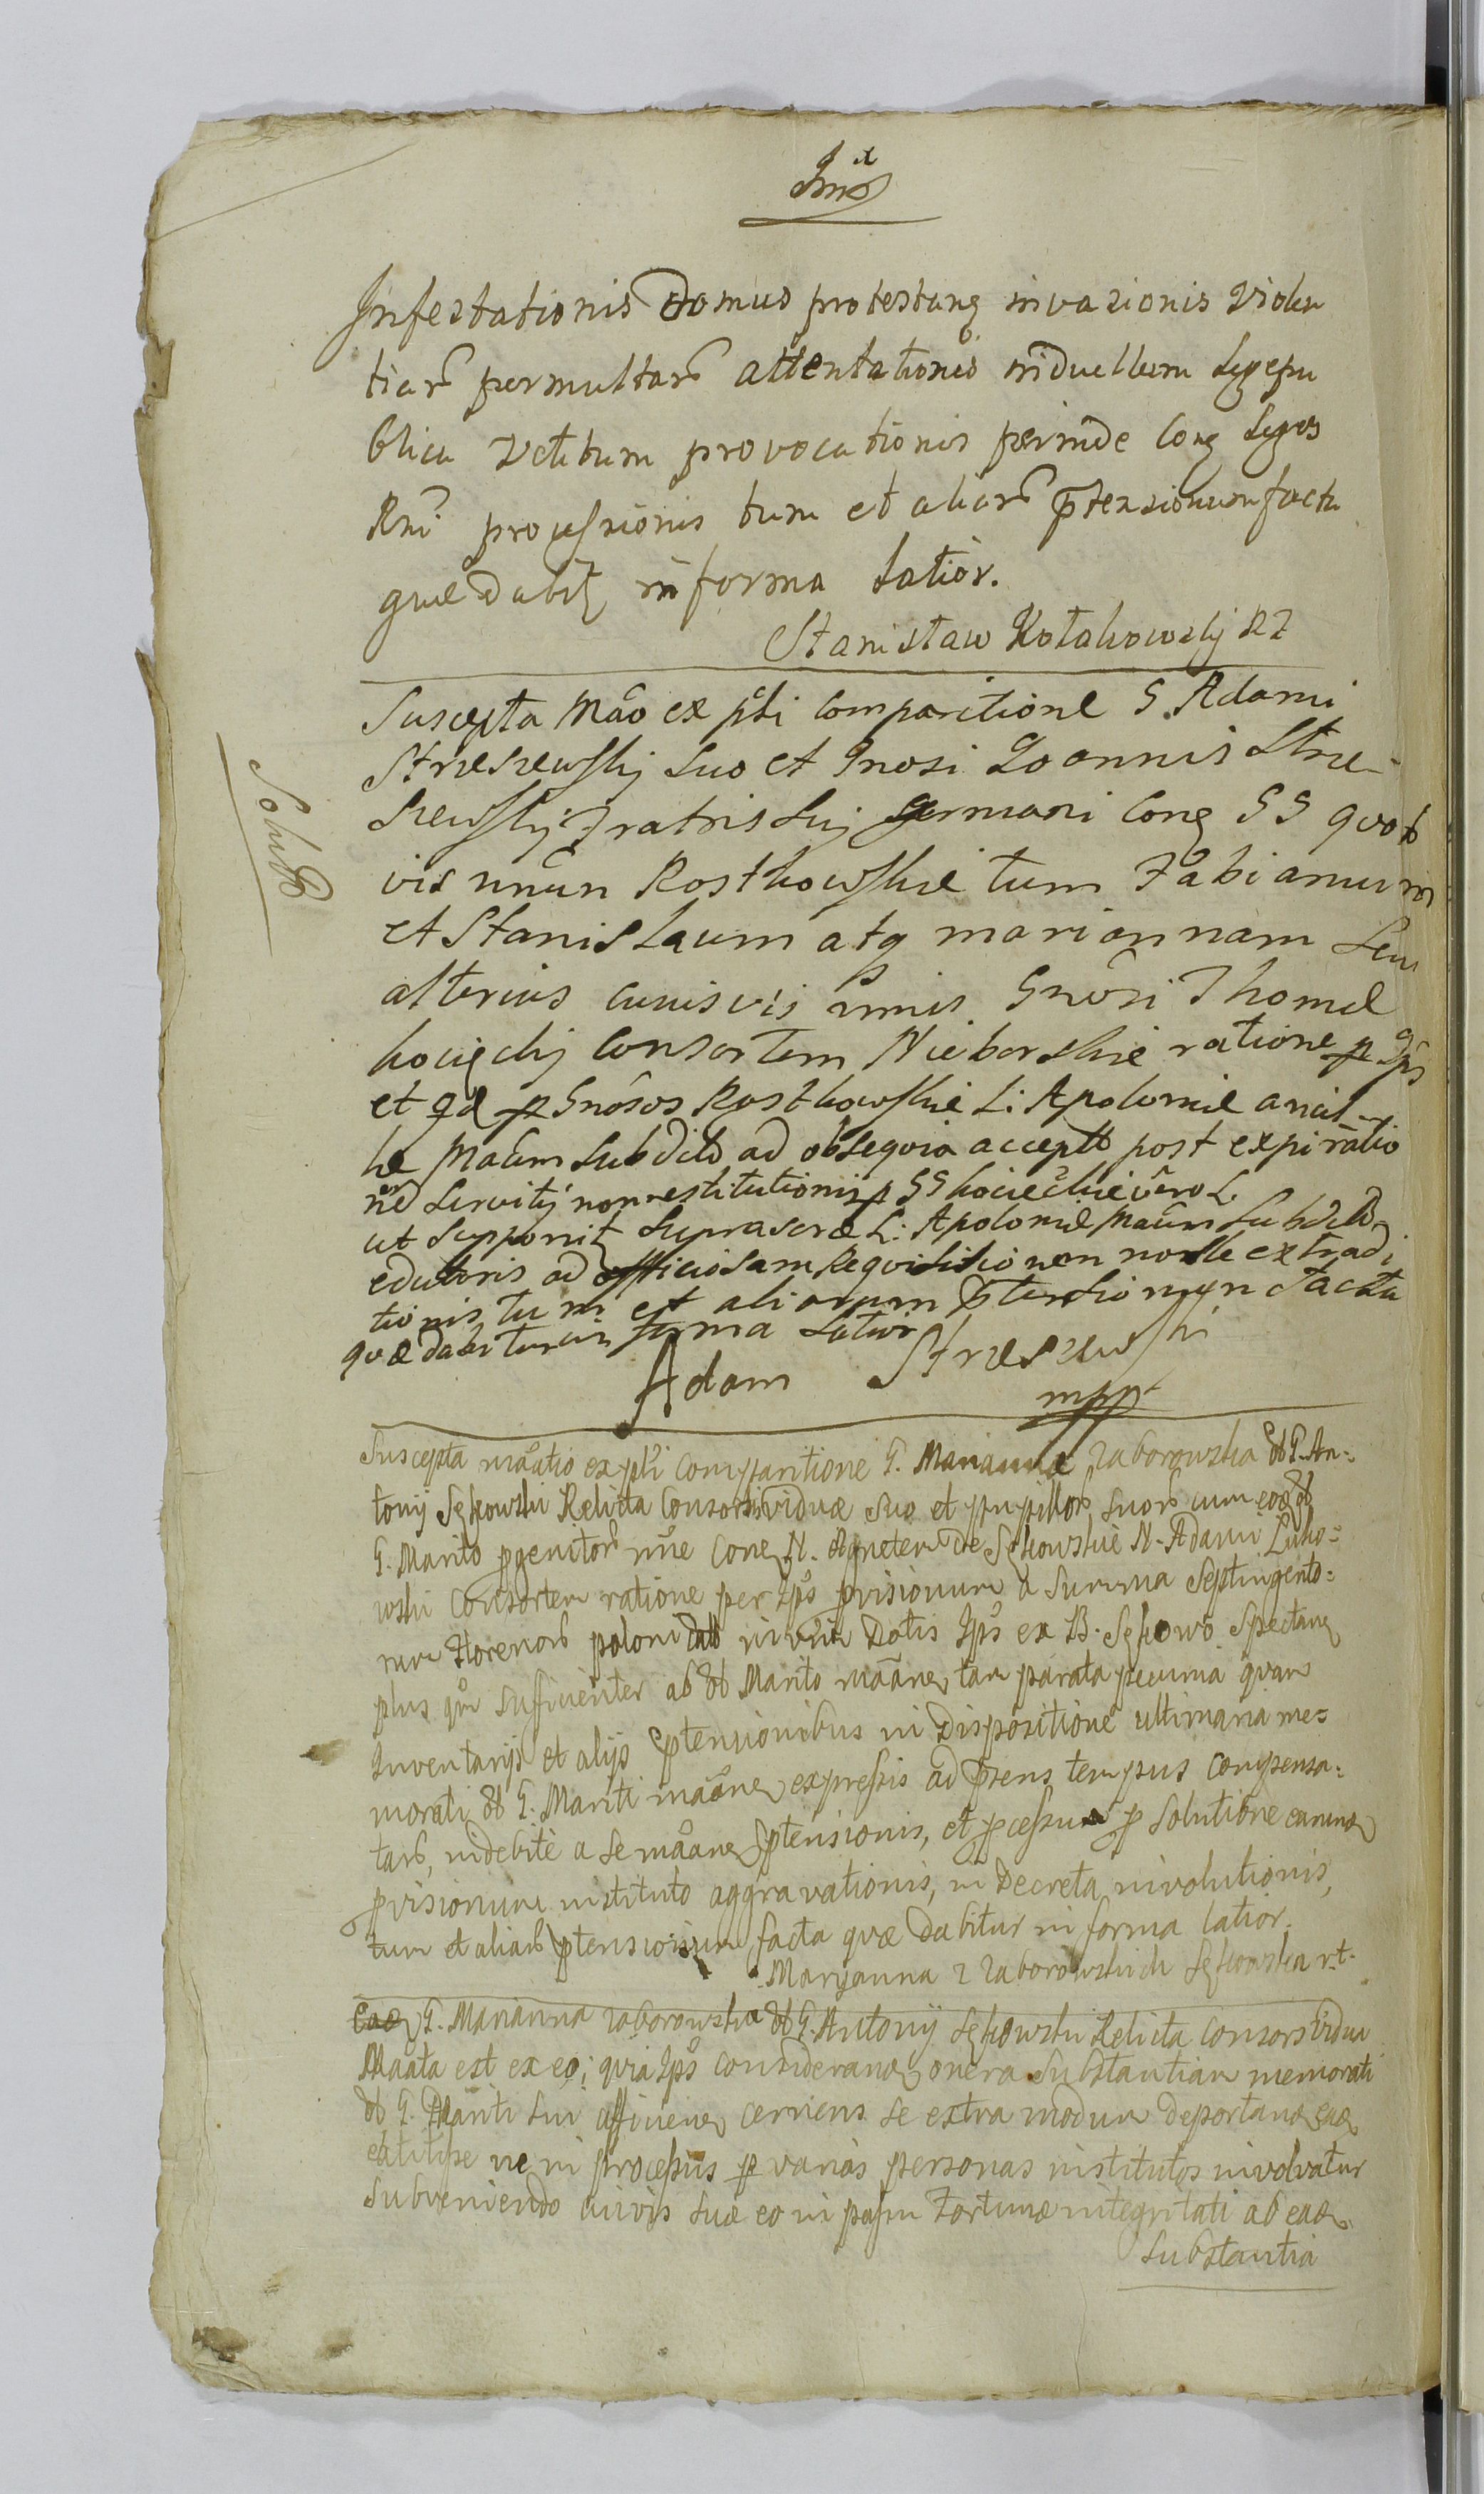 Infestationis domus protestantis invasionis Violen
tiarũ permultarũ attentationis in duellum Lege pu
blica vetitum provocationis perinde Conq Leges
Rni processionis tum et aliarũ ptensionum facta
quæ dabitq in forma latior.
Stanisław Kołakowsky
Suscepta Mão ex psti Comparitione G. Adami
Strzeszewsky Suo et Gnosi Joannis Strze-
szewsky Fratris Suj germani Conq GG quot
vis unũm Rostkowskie tum Fabianum
et Stanislaum atq mariannam Seu
alterius cuiusvis nõmis Gnosi Thomæ
kocięcky Consortem Nieborskie ratione p Ips
et qd p Gnosos Rostkowskie L: Apolonie ancil-
læ Maãm Subdito ad obsequia accepto post expiratio
nẽ Servitÿ non restitutionis p GG kocięckie vero L.
ut Supponitq Suprascræ L: Apoloniæ Maãm Subditã
edultoris ad officiosam Requisitionem nolle extradi
tionis, tum et aliorum ptensionum facta
quæ dabitur in forma latior
Adam Strzeszewski
mpp
Suscepta mãatio ex psti Comparitione G. Mariannæ Zaborowska olt G. An-
tonij Sękowski Relicta Consorsividuæ Suo et pupillorũ Suorũ cum eodq olt
G. Marito pgenitorũ nõie Conq N. Agnetem de Sękowskie N. Adami Luko-
wski Consortem ratione per Ips pvisionum a Summa Septingento-
rum Florenorũ poloni in vim Dotis Ips ex B. Sękowo Spectanq
plus qm sufficienter ab olt Marito mãanq tam parata pecunia quam
Inventarijs et alijs ptensionibus in Dispositione ultimaria me-
morati olt G. Mariti mãanq expressis ad præsens tempus compensa-
tarũ, indebitè a se mãanq ptensionis, et pcessu p Solutione earundq
pvisionum instituto aggravationis, in Decreta involutionis,
tum et aliarũ ptensionum facta quæ dabitur in forma latior.
Maryanna z Zaborowskich Sękowska
Eadq G. Marianna Zaborowska olt G. Antonij Sękowski Relicta Consors Vidua
Mãata est ex eo; quia Ips considerandq onera Substantiam memorati
olt G. Mariti Sui afficienq cerniens se extra modum deportandq eadq
extitisse ne in processus p varias personas institutos involvatur
Subveniendo cuivis suæ eo in passu Fortunæ integritati ab eadq
Substantia